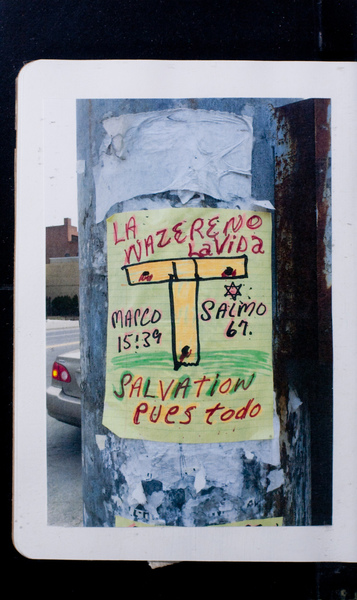 LA
NAZERENO
LaViDa
MARCO
15:39
SALMO
67.
SALVATION
PUES todo